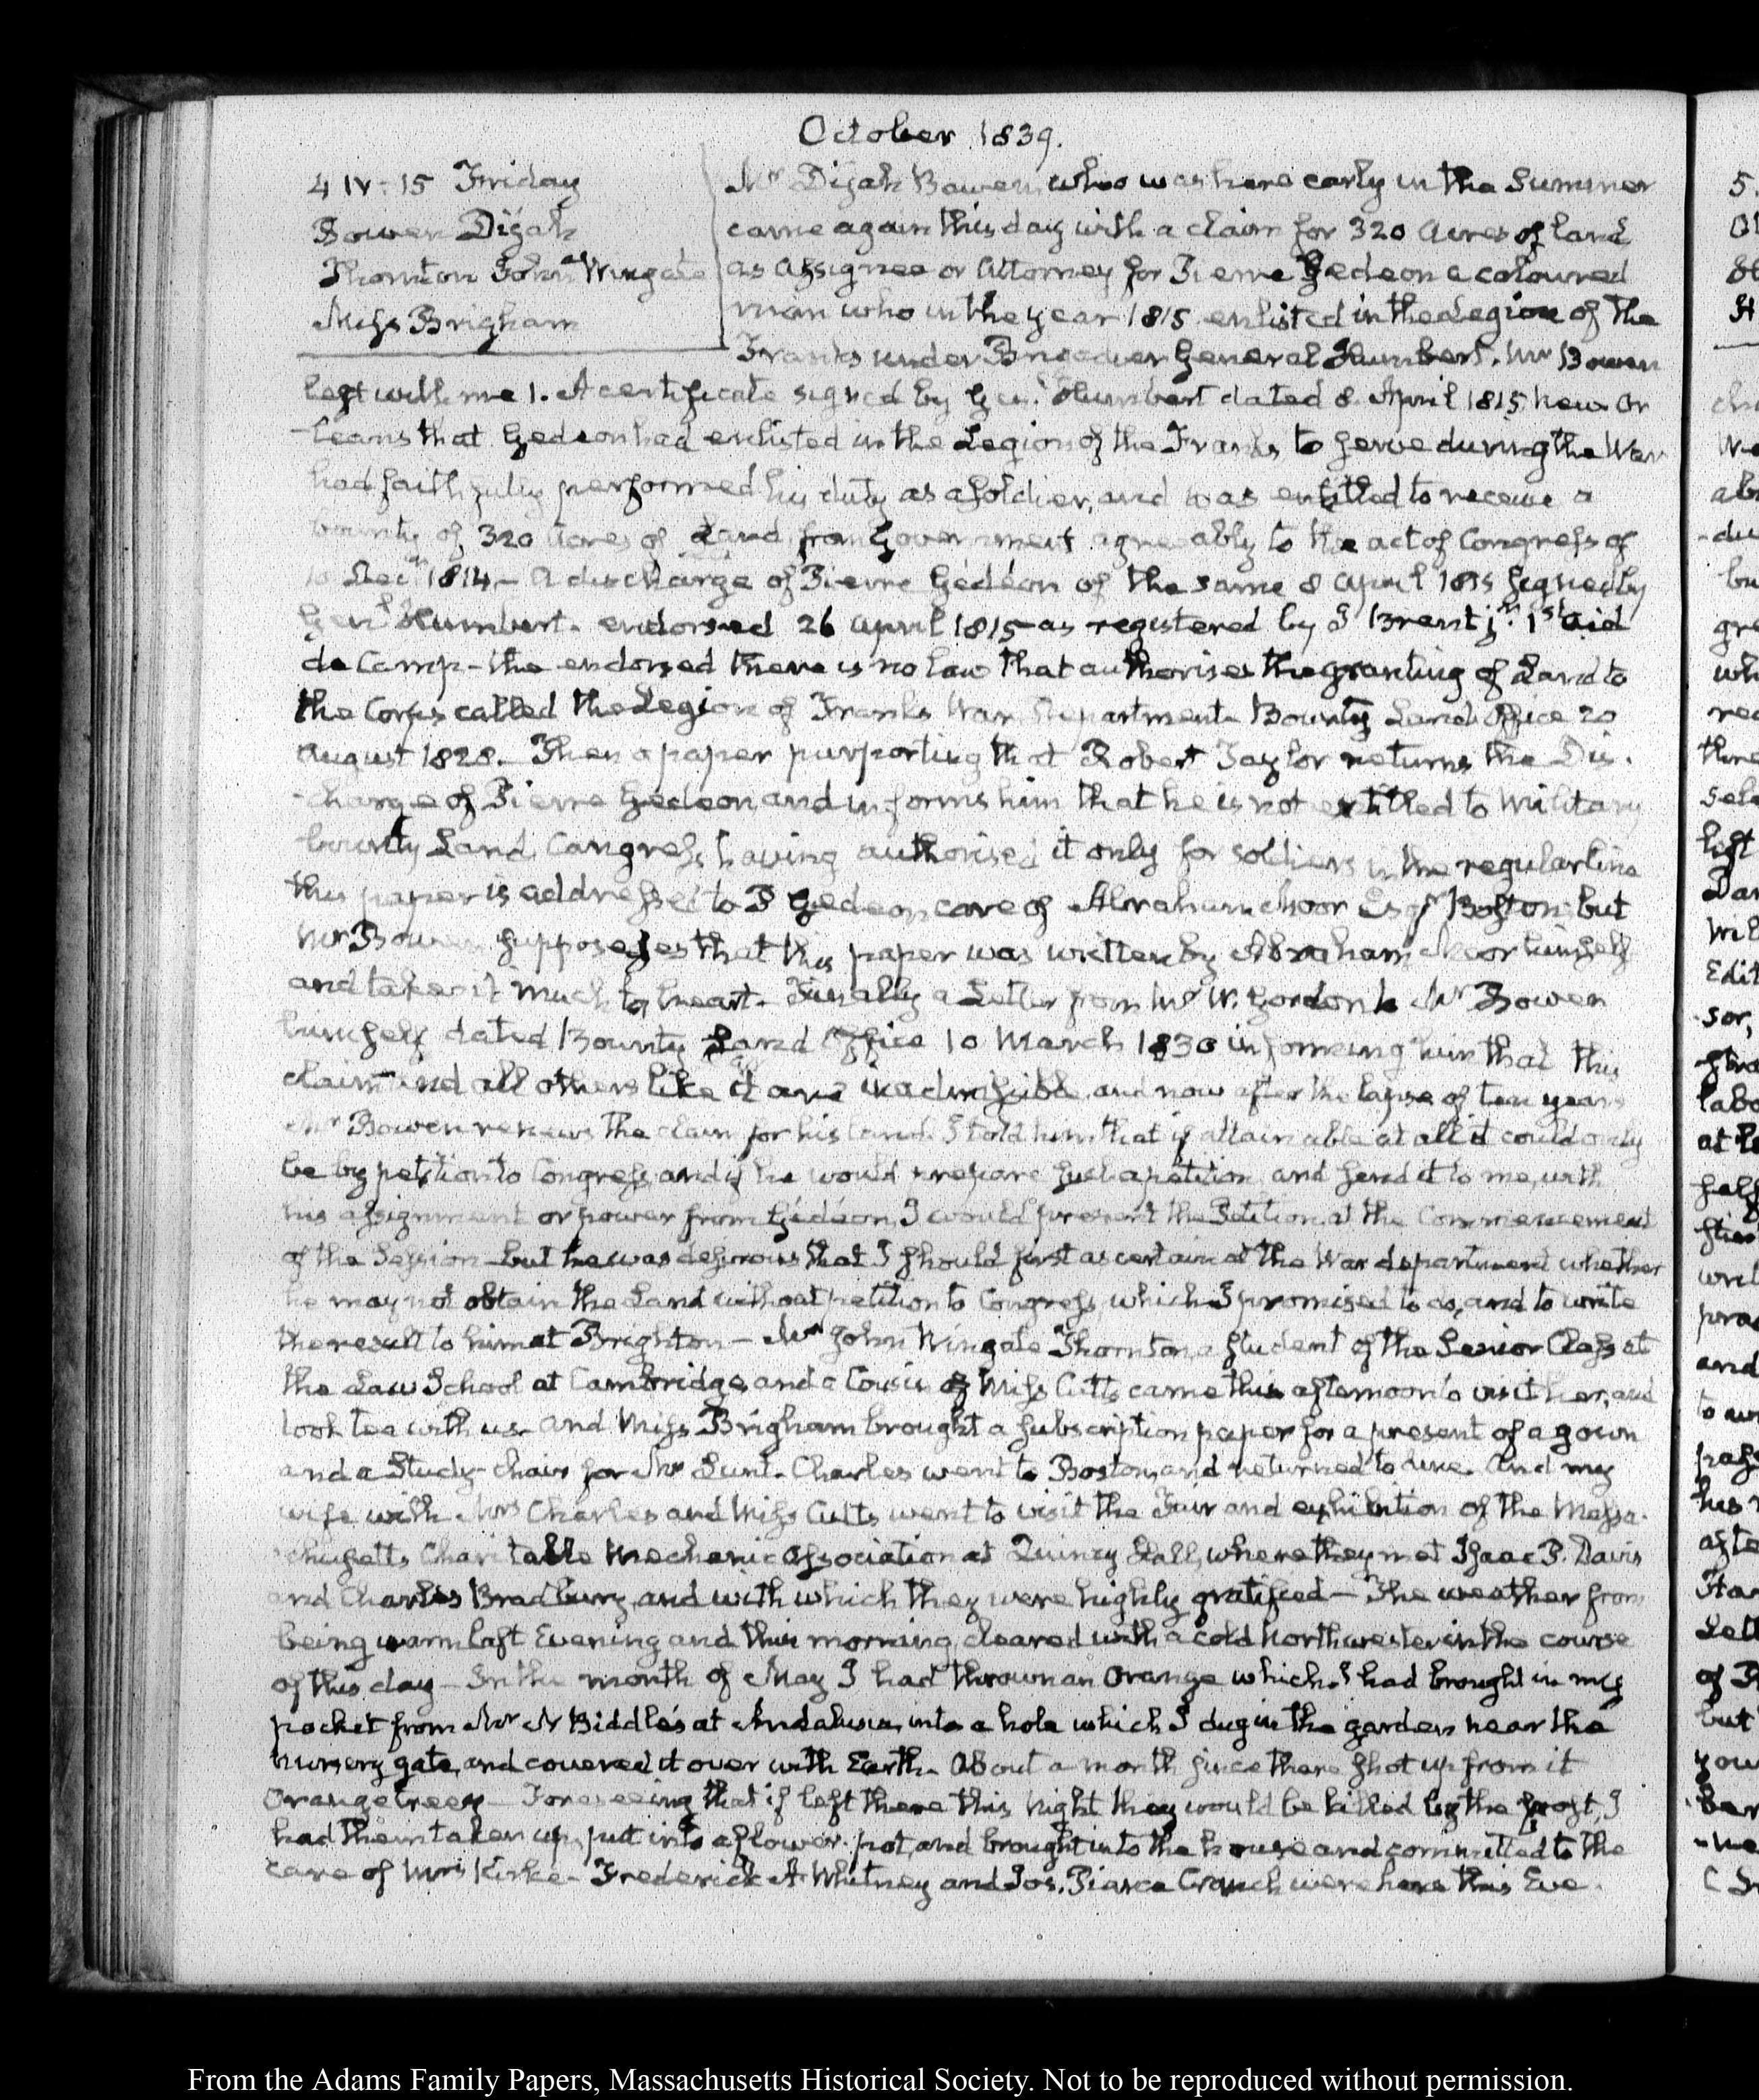 October 1839.
4 IV:15 Friday
Bowen Dijah
Thornton John Wingate
Miss Brigham
Mr Dijah Bowen, who was here early in the Summer
came again this day with a claim for 320 Acres of land
as Assignee or Attorney for Pierre Gedeon a coloured
man who in the year 1815 enlisted in the Legion of the
Franks under Brigadier General Humbert. Mr Bowen
left with me 1. A certificate signed by Genl. Humbert dated 8. April 1815 New Or
-leans that Gedeon had enlisted in the Legion of the Franks to serve during the War
had faithfully performed his duty as a soldier, and was entitled to receive a
bounty of 320 Acres of Land from Government agreeably to the act of Congress of
10 Decr 1814 — A discharge of Pierre Gédéon of the same 8 April 1815 signed by
Genl Humbert. endorsed 26 April 1815 as registered by Brent jr. 1st Aid
de Camp — the endorsed there is no law that authorises the granting of Land to
the Corps called the Legion of Franks War Department. Bounty Land Office 20
August 1828. Then a paper purporting that Robert Taylor returns the Dis-
-charge of Pierre Gedeon and informs him that he is not entitled to Military
bounty Land, Congress having authorised it only for soldiers in the regular line
this paper is addressed to P Gedeon care of Abraham Moor Esqr Boston but
Mr Bowen supposes that this paper was written by Abraham Moor himself
and takes it much to heart. Finally a Letter from Mr W. Gordon to Mr Bowen
himself dated Bounty Land Office 10 March 1830 informing him that this
claim and all others like it are inadmissible and now after the lapse of ten years
Mr Bowen renews the claim for his land. I told him that if attainable at all it could only
be by petition to Congress, and if he would prepare such a petition, and send it to me, with
his assignment or power from Gédéon, I would present the Petition at the Commencement
of the Session but he was desirous that I should first ascertain at the War department whether
he may not obtain the Land without petition to Congress, which I promised to do, and to write
the result to him at Brighton — Mr John Wingate Thornton, a student of the Senior Class at
the Law School at Cambridge, and a Cousin of Miss Cutts came this afternoon to visit her, and
took tea with us. and Miss Brigham brought a subscription paper for a present of a gown
and a Study-chair for Mr Lunt. Charles went to Boston, and returned to dine. And my
wife with Mrs Charles and Miss Cutts went to visit the Fair and exhibition of the Massa-
-chusetts Charitable Mechanic Association at Quincy Hall, where they met Isaac P. Davis
and Charles Bradbury, and with which they were highly gratified — The weather from
being warm last Evening and this morning, cleared with a cold Northwester in the course
of this day — In the month of May I had thrown an Orange which I had brought in my
pocket from Mr N Biddle's at Andalusia, into a hole which I dug in the garden near the
nursery gate, and covered it over with Earth. About a month since there shot up from it
Orange trees — Foreseeing that if left there this Night they would be killed by the frost, I
had them taken up, put into a flower-pot, and brought into the house and committed to the
care of Mrs Kirke — Frederick A Whitney and Jos. Pearce Cranch were here this Eve.
From the Adams Family Papers, Massachusetts Historical Society. Not to be reproduced without permission.